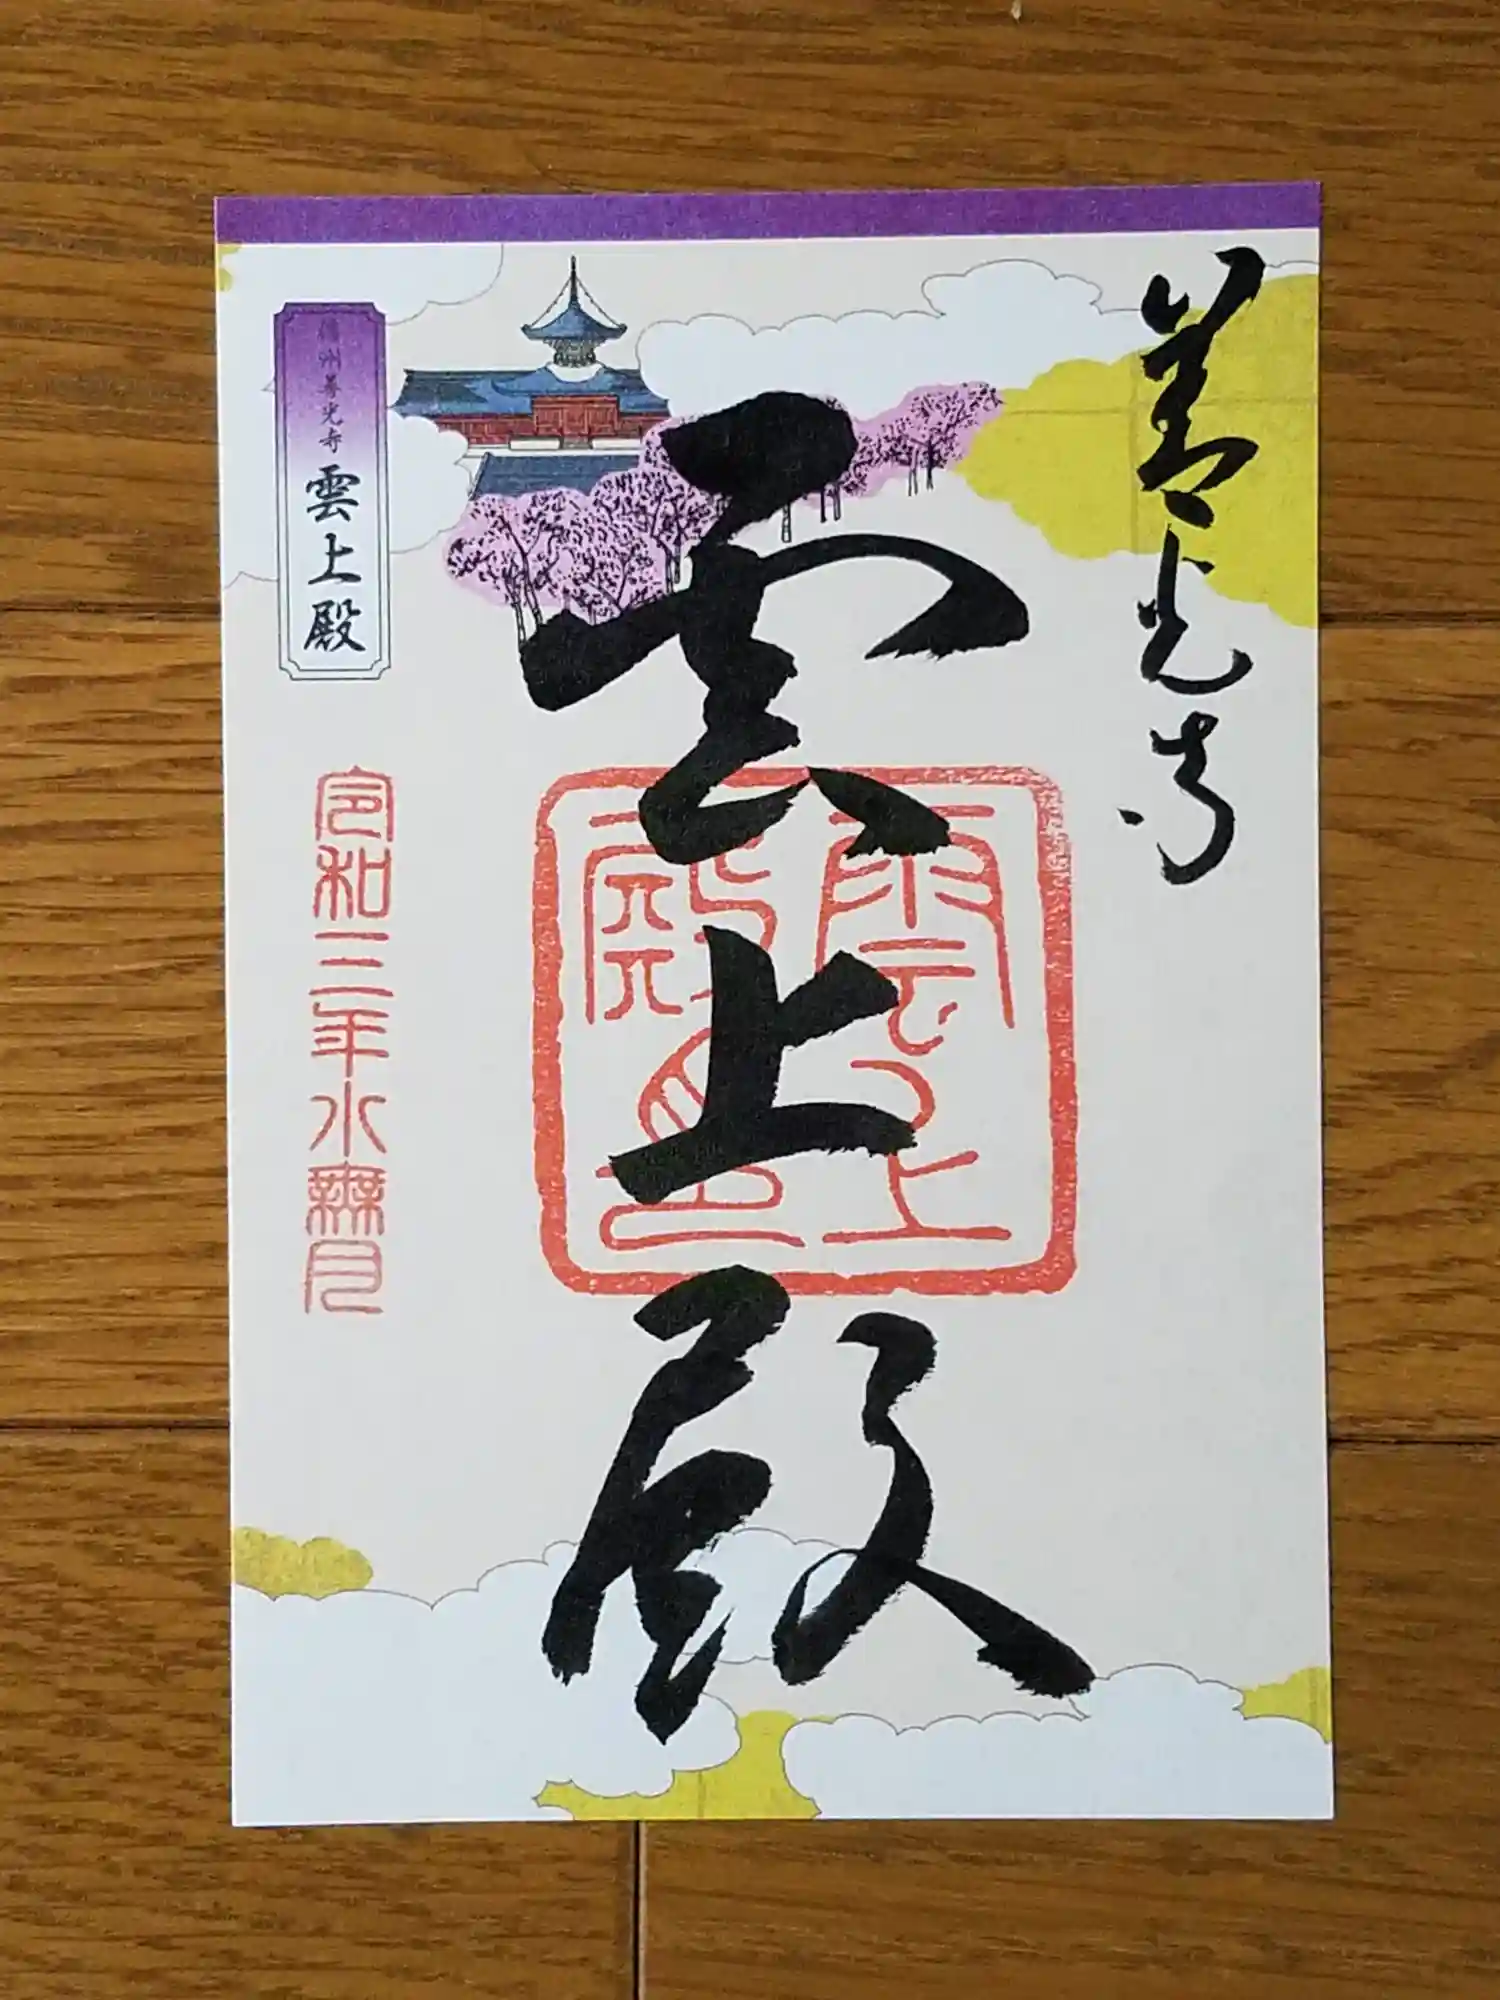 善光寺
雲上殿
雲上
殿
信州善光寺 雲上殿
令和三年水無月